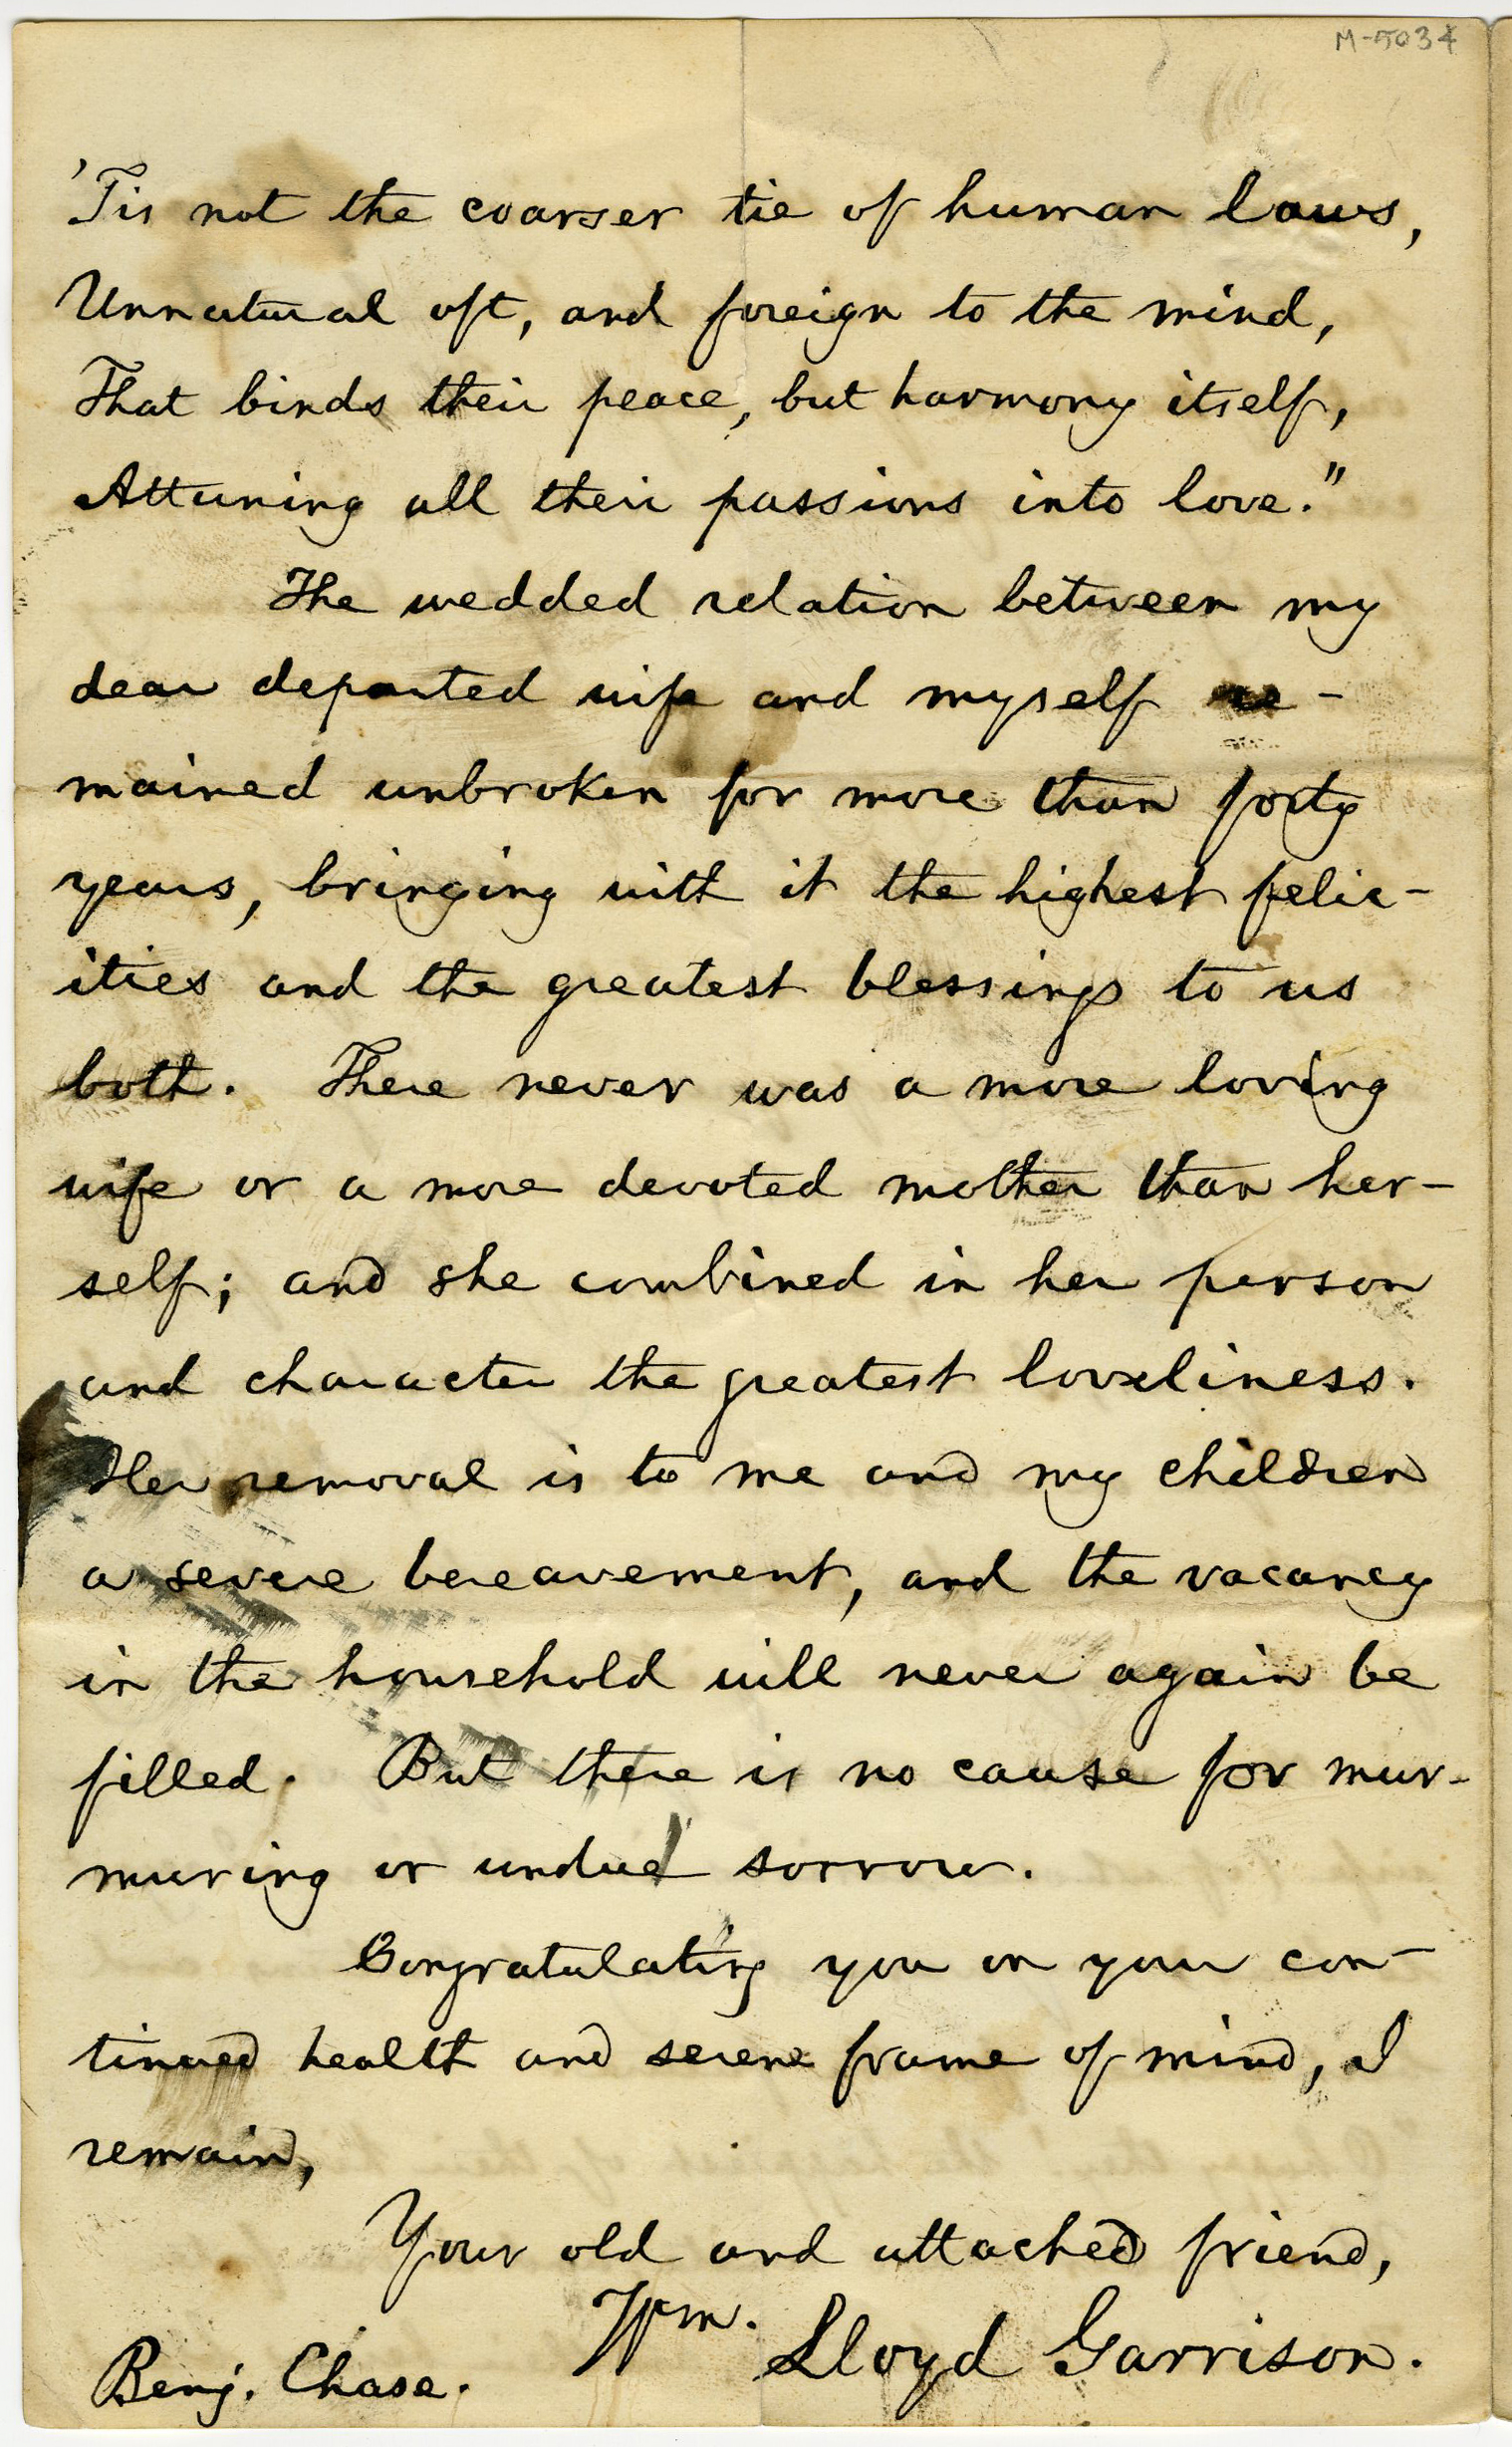 M-5034
'Tis not the coarser tie of human laws,
Unnatural oft, and foreign to the mind,
That binds their peace, but harmony itself,
Attuning all their passions into love."
The wedded relation between my
dear departed wife and myself re-
mained unbroken for more than forty
years, bringing with it the highest felic-
ities and the greatest blessings to us
both. There never was a more loving
wife or a more devoted mother than her-
self; and she combined in her person
and character the greatest loveliness.
Her removal is to me and my children
a severe bereavement, and the vacancy
in the household will never again be
filled. But there is no cause for mur-
muring or undue sorrow.
Congratulating you on your con-
tinued health and serene frame of mind, I
remain,
Your old and attached friend,
Wm. Lloyd Garrison.
Benj. Chase.